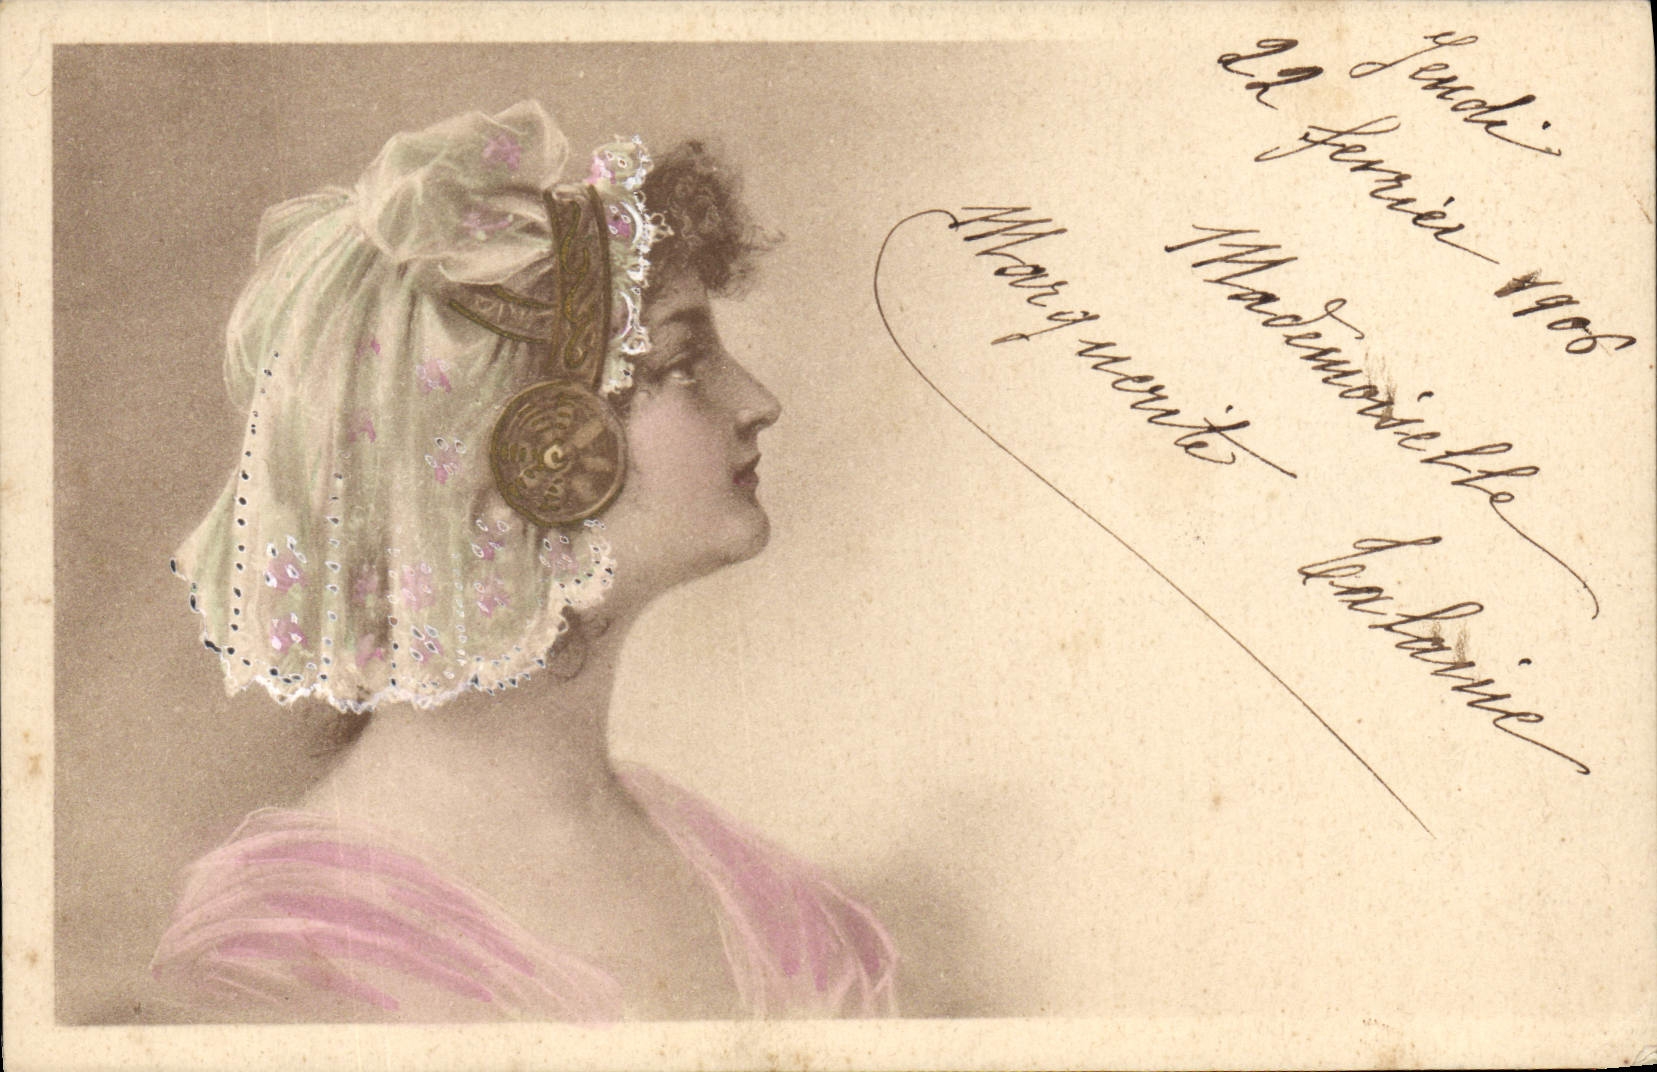 Jeudi
22 fevrier 1906
Mademoiselle
Marguerite
Catarine